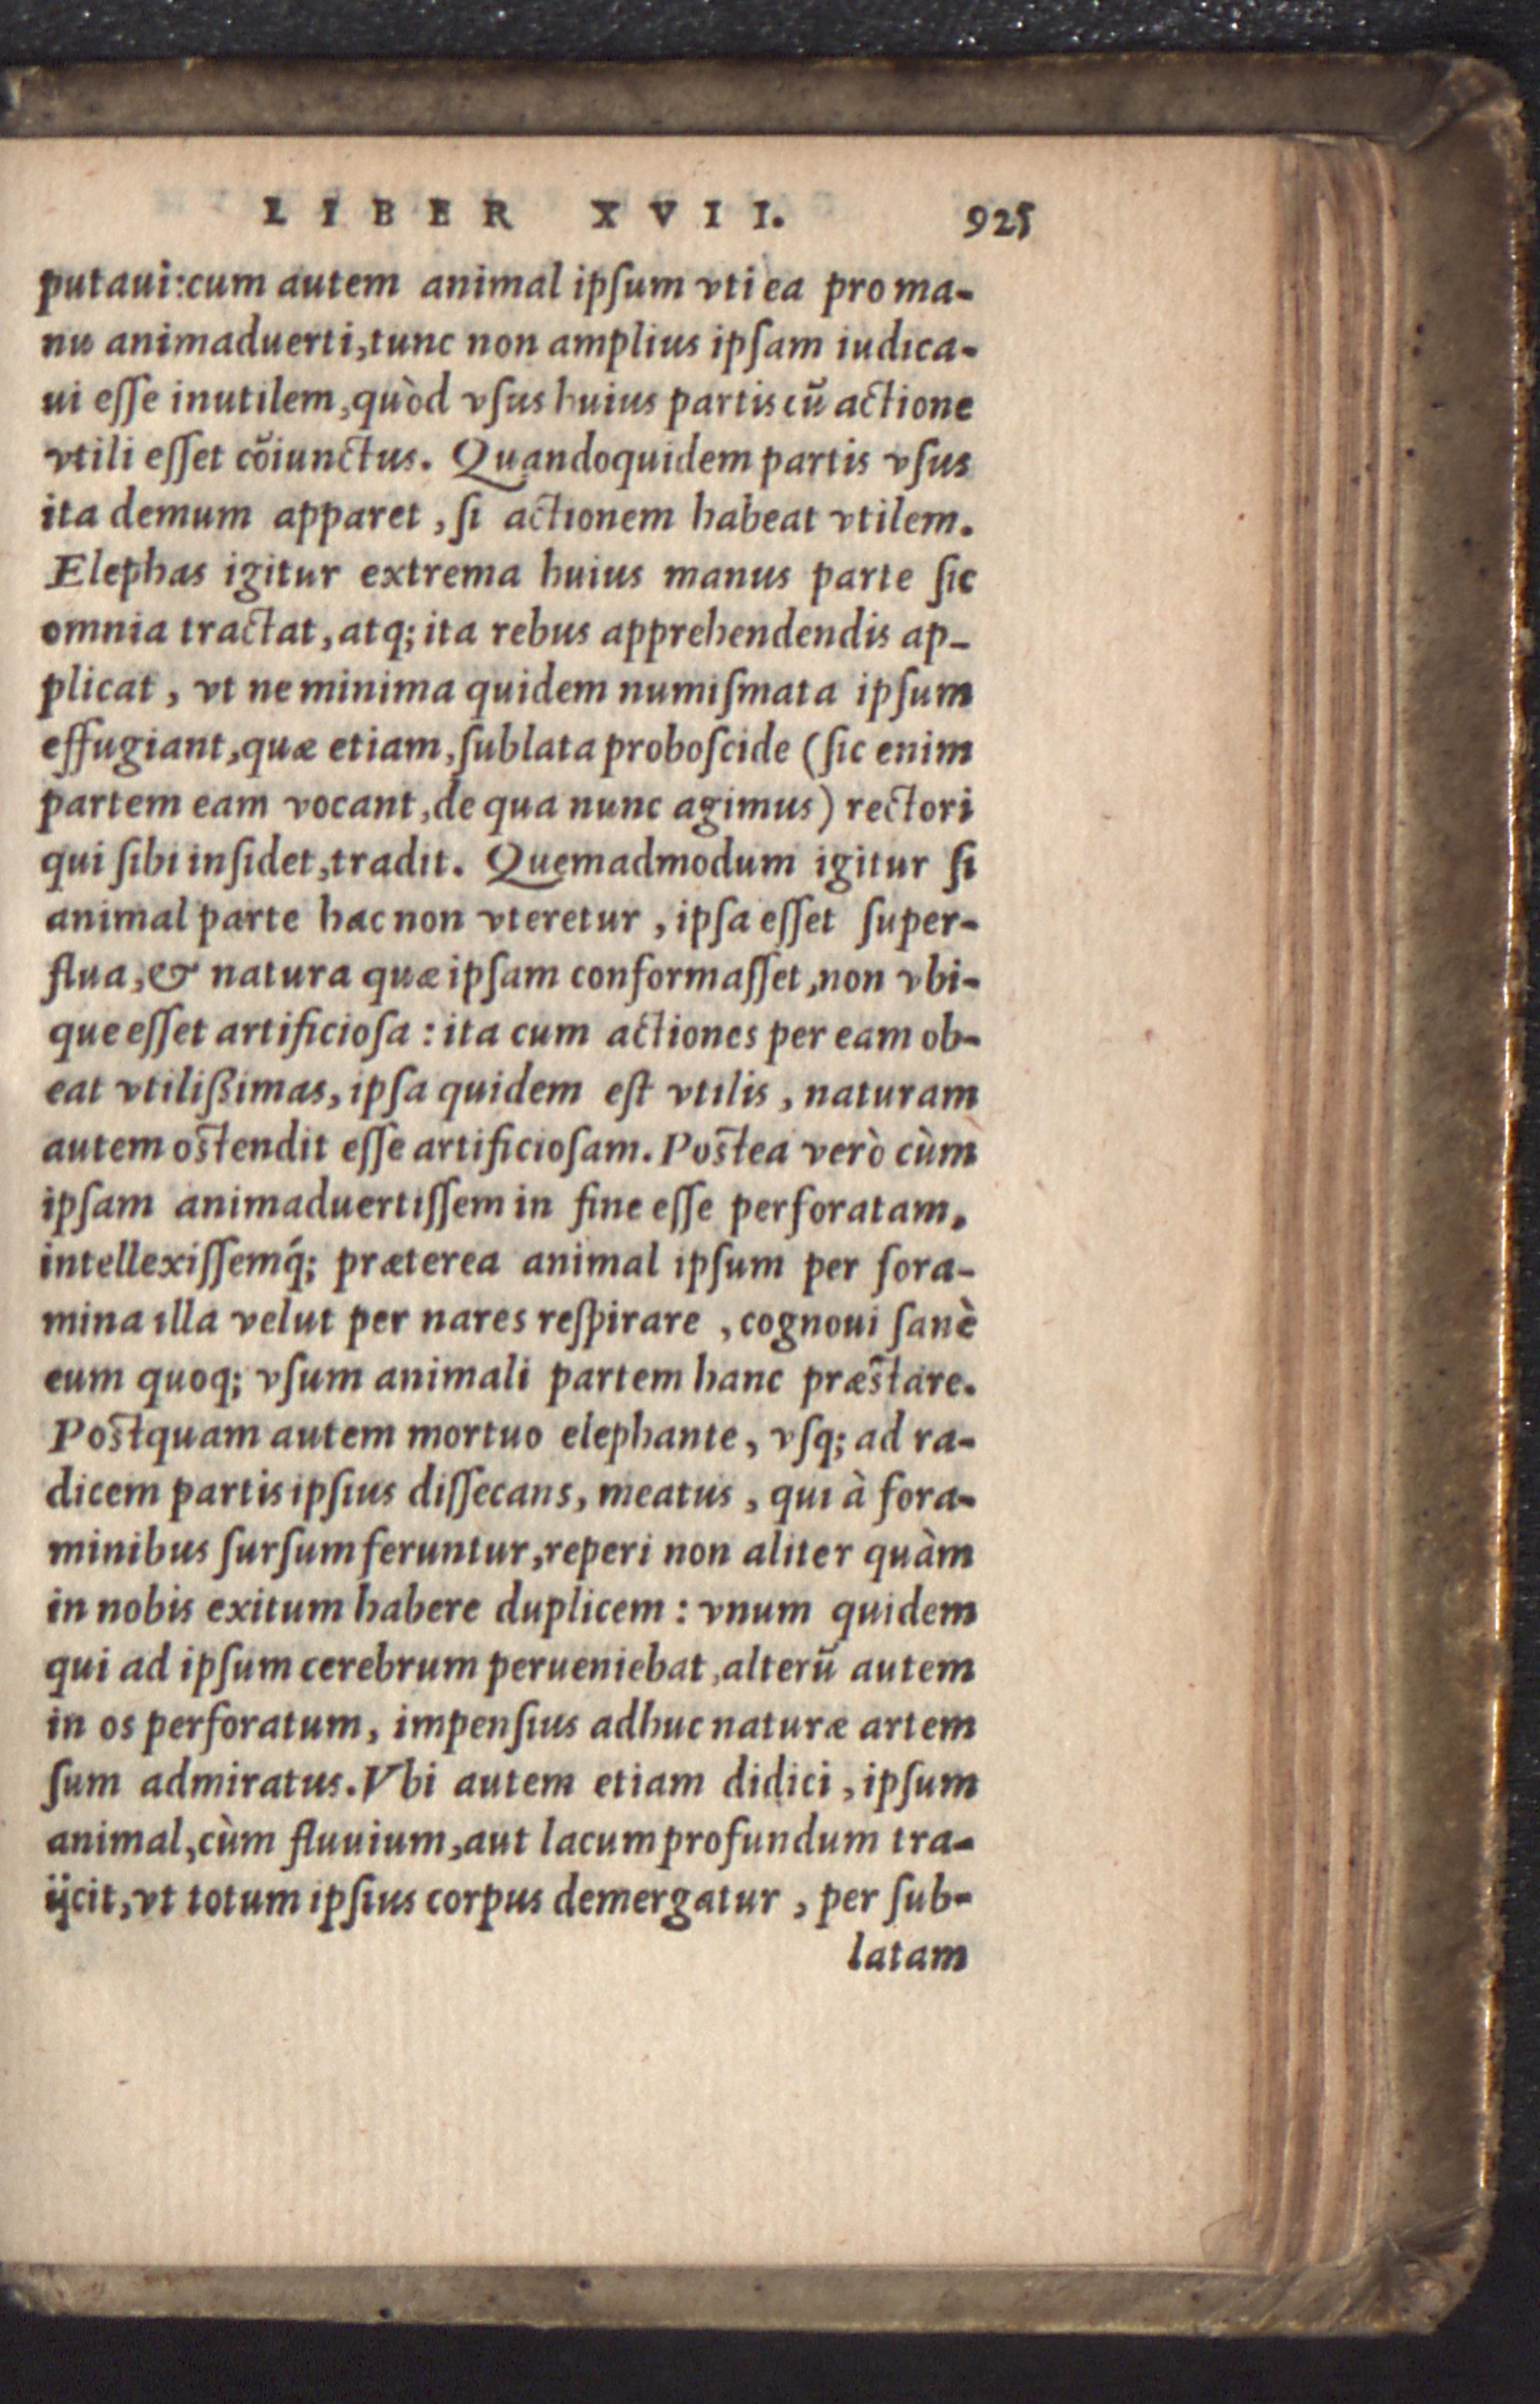 LIBER XVII. 925
putaui:cum autem animal ipſum vti ea pro ma-
nu animaduerti,tunc non amplius ipſam iudica-
ui eſſe inutilem,quòd vſus huius partis cū actione
vtili eſſet cōiunctus. Quandoquidem partis vſus
ita demum apparet, ſi actionem habeat vtilem.
Elephas igitur extrema huius manus parte ſic
omnia tractat, atq; ita rebus apprehendendis ap-
plicat, vt ne minima quidem numiſmata ipſum
effugiant,quæ etiam,ſublata proboſcide (ſic enim
partem eam vocant,de qua nunc agimus) rectori
qui ſibi inſidet,tradit. Quemadmodum igitur ſi
animal parte hac non vteretur, ipſa eſſet ſuper-
flua,& natura quæ ipſam conformaſſet,non vbi-
que eſſet artificioſa: ita cum actiones per eam ob-
eat vtilißimas, ipſa quidem eſt vtilis, naturam
autem oſtendit eſſe artificioſam. Poſtea verò cùm
ipſam animaduertiſſem in fine eſſe perforatam,
intellexiſſemq́; præterea animal ipſum per fora-
mina illa velut per nares reſpirare, cognoui ſanè
eum quoq; vſum animali partem hanc præſtare.
Poſtquam autem mortuo elephante, vſq; ad ra-
dicem partis ipſius diſſecans, meatus, qui à fora-
minibus ſurſum feruntur,reperi non aliter quàm
in nobis exitum habere duplicem: vnum quidem
qui ad ipſum cerebrum perueniebat,alterū autem
in os perforatum, impenſius adhuc naturæ artem
ſum admiratus. Vbi autem etiam didici, ipſum
animal,cùm fluuium,aut lacum profundum tra-
ijcit,vt totum ipſius corpus demergatur, per ſub-
latam